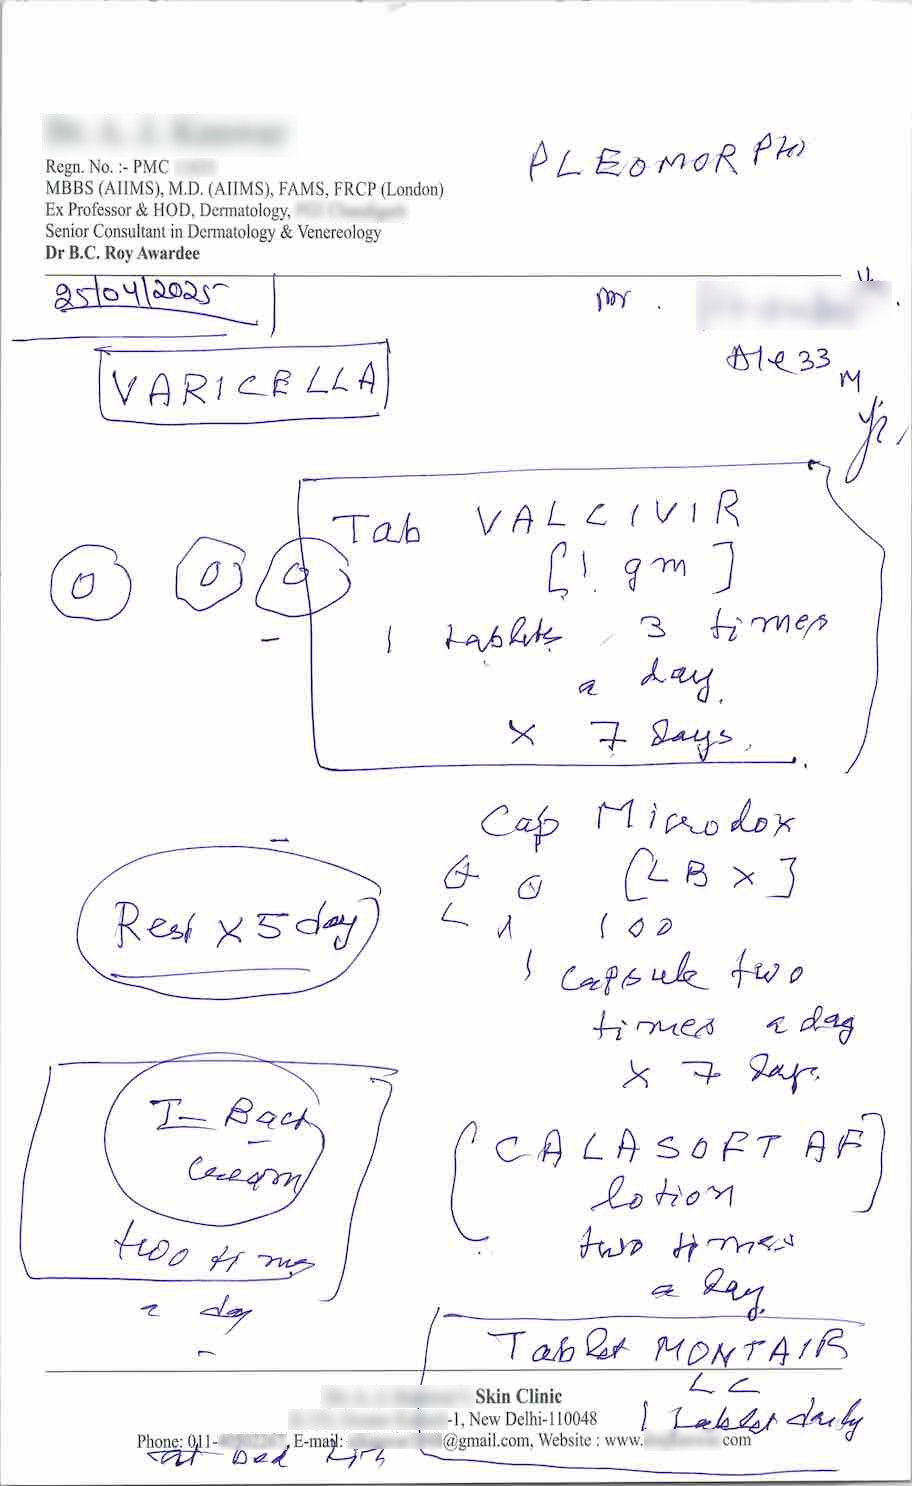 PLEOMORPHI
Regn. No. :- PMC
MBBS (AIIMS), M.D. (AIIMS), FAMS, FRCP (London)
Ex Professor & HOD, Dermatology,
Senior Consultant in Dermatology & Venereology
Dr B.C. Roy Awardee
25/04/2025
Mr.
33
M
yr,
VARICELLA
Tab VALCIVIR
[1 gm]
1 tablets 3 times
a day
x 7 days.
Cap Microdox
[LBX]
100
1 capsule two
times a day
x 7 days.
Rest x 5 day
T-Bact
cream
two times
a day
[CALASOFT AF]
lotion
two times
a day
Tablet MONTAIR
LC
1 tablet daily
Skin Clinic
-1, New Delhi-110048
Phone: 011- , E-mail: @gmail.com, Website : www. com
at bed